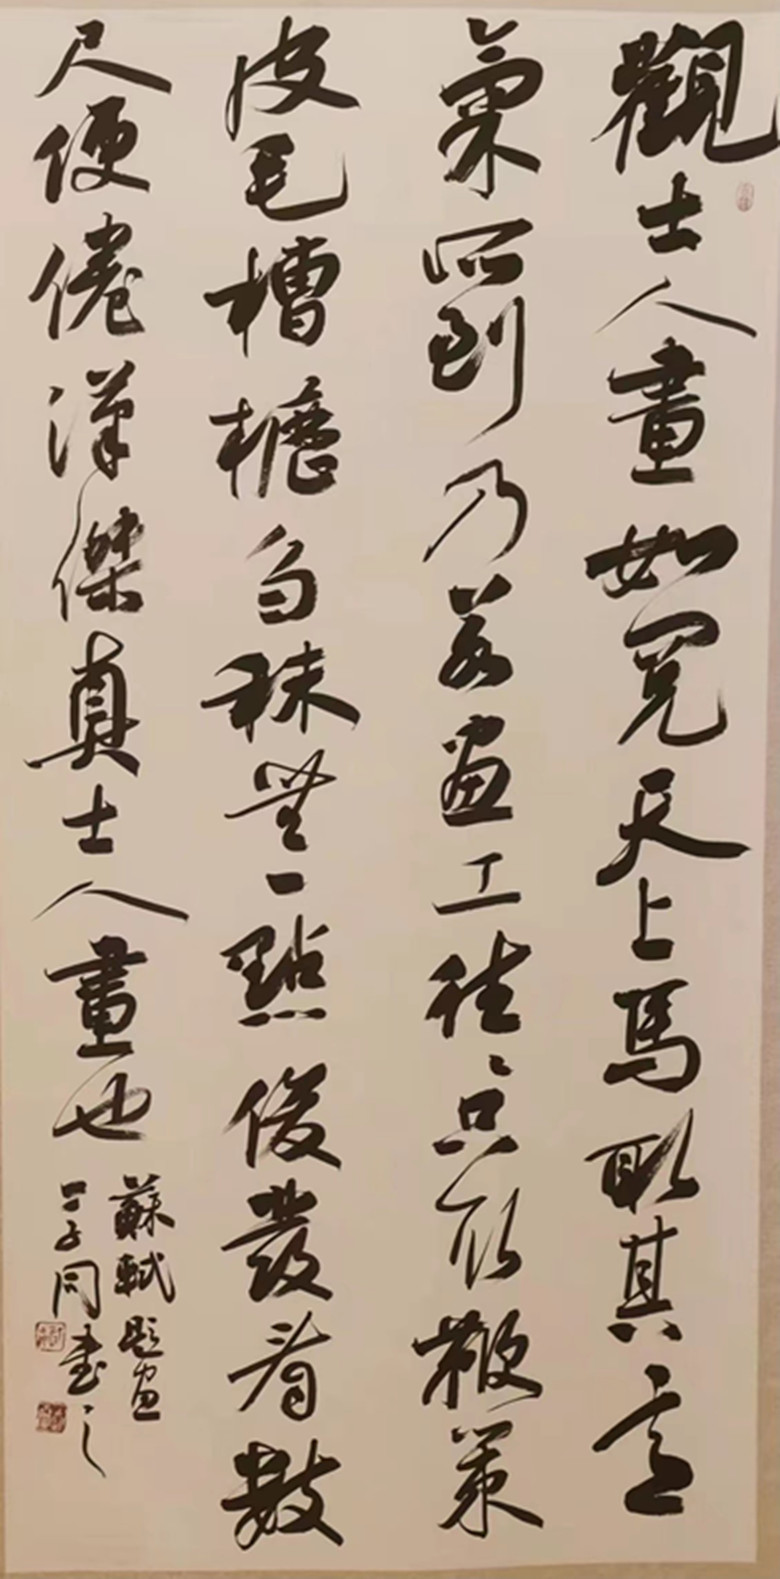 觀士人畫如閱天上馬取其意
氣所到乃若画工往往只取鞭策
皮毛槽櫪芻秣無一點俊發看數
尺便倦漢傑真士人畫也
蘇軾題画
子同書之